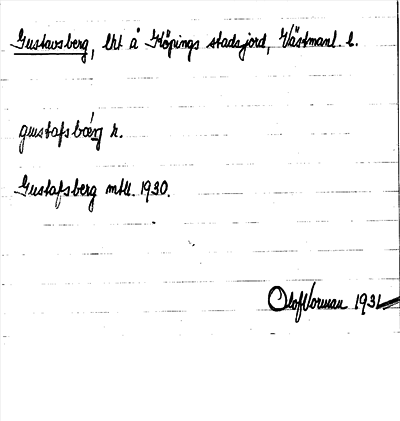 Gustavsberg, lht å Köpings stadsjord, Västmanl. l.
gustafsbærg n.
Gustafsberg mtll. 1930.
Olof Norman 1931